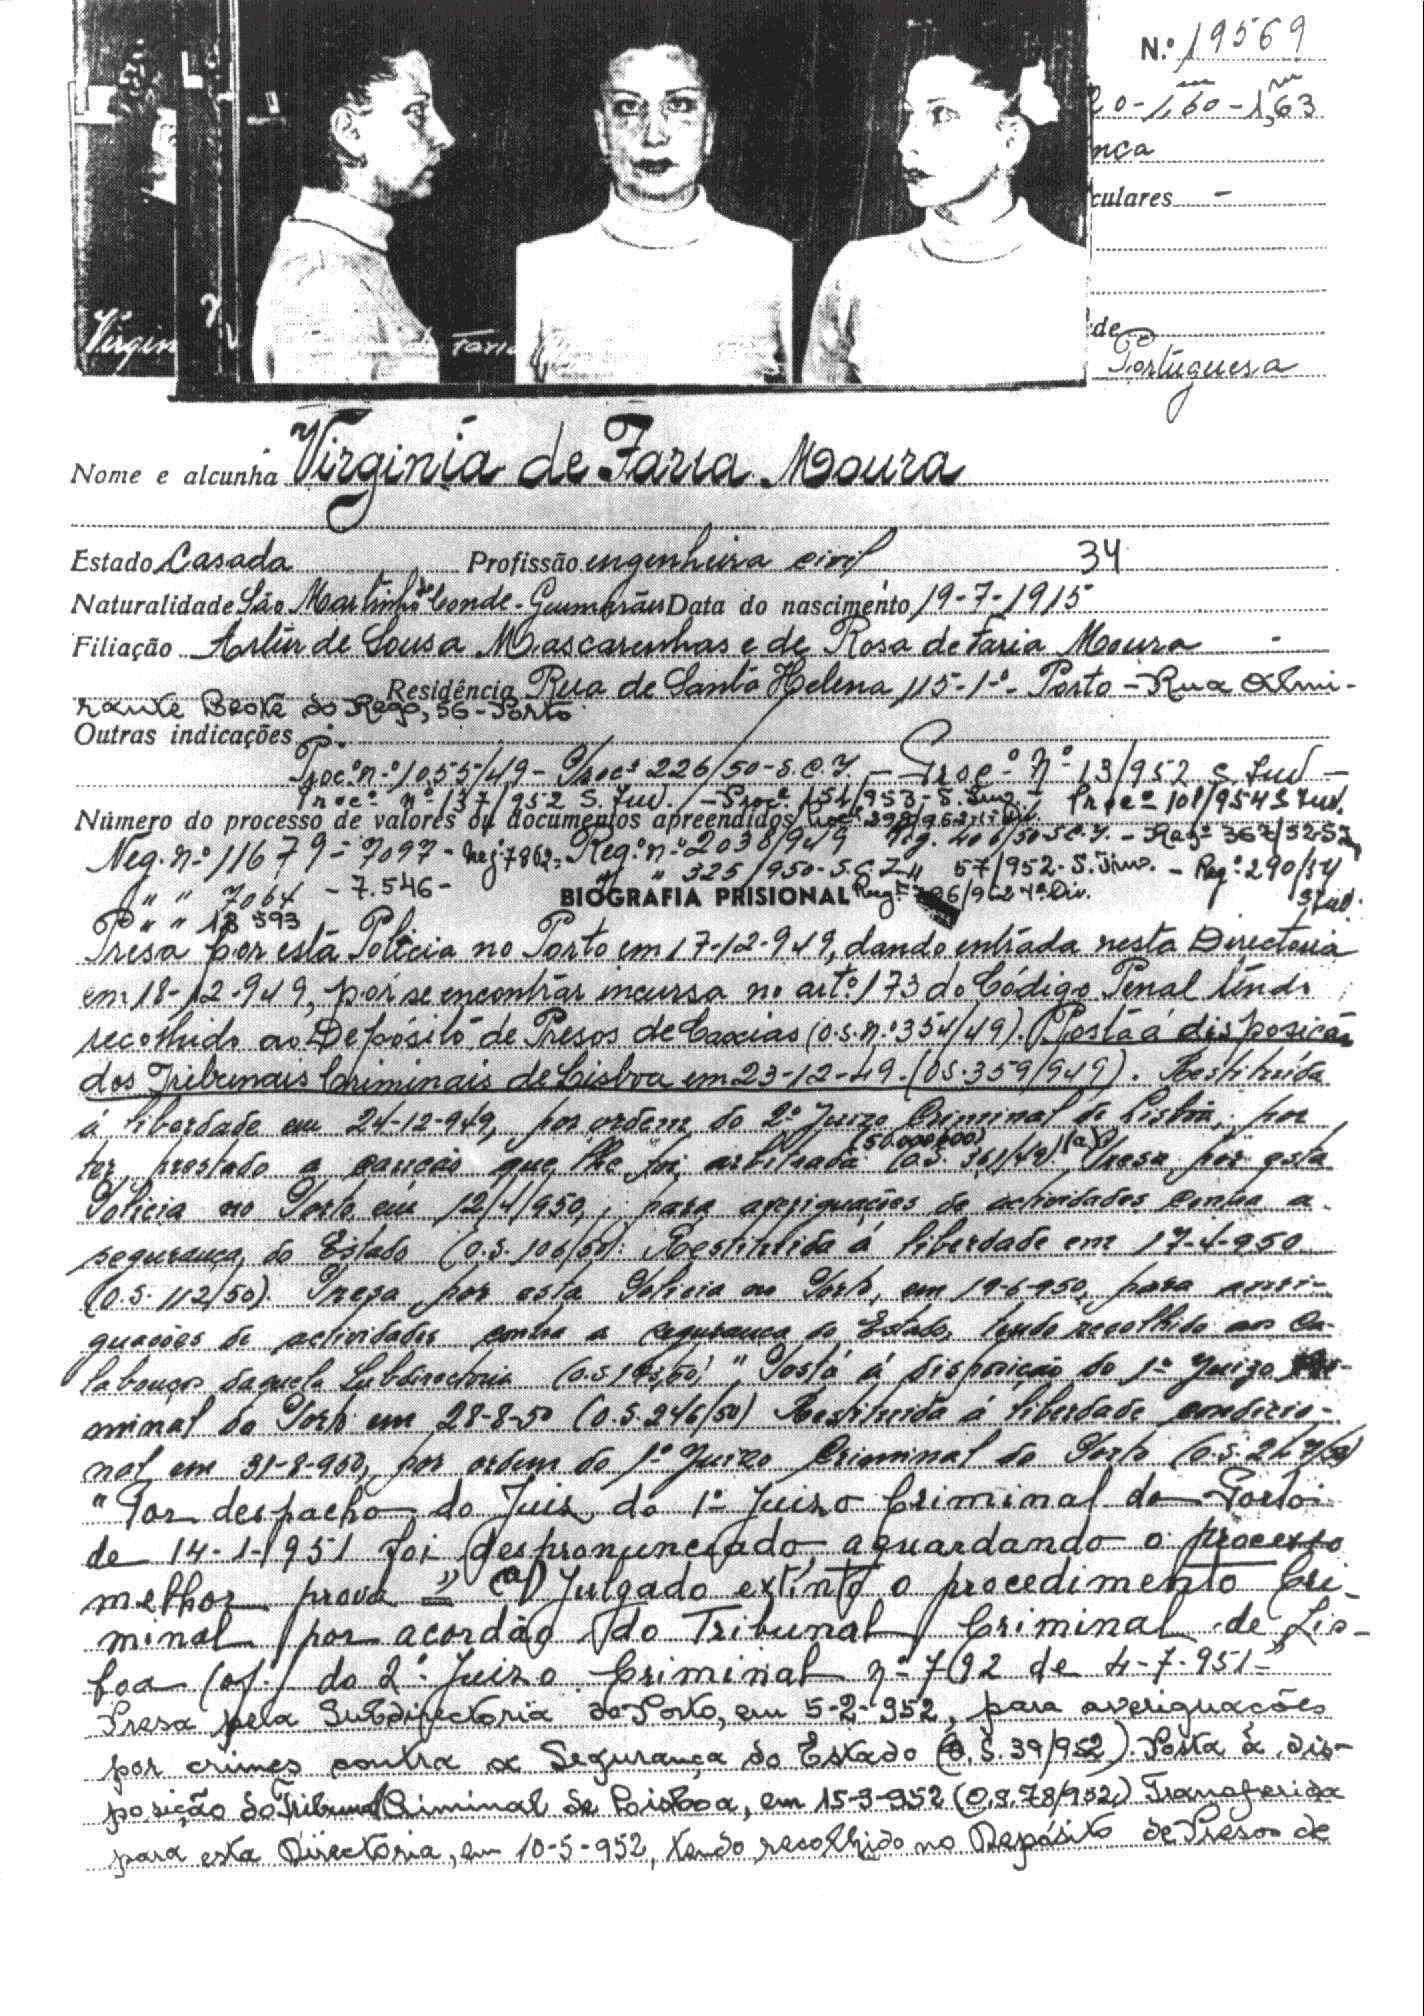 N.º 19569
1,60 - 1,63
nca
culares -
de
Portuguesa
Virgin
de Faria
Nome e alcunha Virginia de Faria Moura
Estado Casada Profissão engenheira civil 34
Naturalidade São Martinho do Conde - Guimarães Data do nascimento 19-7-1915
Filiação Artur de Sousa Mascarenhas e de Rosa de Faria Moura -
Residência Rua de Santa Helena 115-1º - Porto - Rua Almi-
rante Leote do Rego, 56 - Porto
Outras indicações
Proc.º n.º 1055/49 - Proc.º 226/50 - S.C.I. - Proc.º Nº 13/952 S. Inv -
Proc.º nº 137/952 S. Inv. - Proc.º 151/953 - S. Inv. - Proc.º 108/954 S Inv.
Número do processo de valores ou documentos apreendidos Proc. 398/962-1ª Div.
Neg. n.º 11679 - 7097 - Neg. 7862 - Reg.º n.º 2038/949 Reg. 400/50 S.C.I. - Reg.º 367/52 S.
" " 7064 - 7.546 - " " 325/950 - S.C.I. 57/952 - S. Inv. - Reg.º 290/54
" " 13 593 BIOGRAFIA PRISIONAL Reg.º /962 1ª Div. S Inv.
Presa por esta Polícia no Porto em 17-12-949, dando entrada nesta Directoria
em 18-12-949, por se encontrar incursa no artº 173 do Código Penal tendo
recolhido ao Depósito de Presos de Caxias (O.S. n.º 354/49). Posta á disposição
dos Tribunais Criminais de Lisboa em 23-12-49. (O.S. 359/949). Restituida
á liberdade em 24-12-949, por ordem do 2º Juizo Criminal de Lisboa, por
ter prestado a caução que lhe foi arbitrada (50.000$00) (O.S. 361/49) (a) Presa por esta
Polícia no Porto em 12/4/950, para averiguações de actividades contra a
segurança do Estado (O.S. 106/50). Restituida á liberdade em 17-4-950
(O.S. 112/50). Presa por esta Polícia no Porto, em 19-6-950, para averi-
guações de actividades contra a segurança do Estado, tendo recolhido aos ca-
labouços daquela Subdirectoria (O.S. /50) " Posta á disposição do 1º Juizo Cri-
minal do Porto em 28-8-50 (O.S. 246/50) Restituida á liberdade condicio-
nal em 31-8-950, por ordem do 1º Juizo Criminal do Porto (O.S. 247/50)
"Por despacho do Juiz do 1º Juizo Criminal do Porto
de 14-1-1951 foi despronunciado, aguardando o processo
melhor prova" (a) Julgado extinto o procedimento Cri-
minal por acordão do Tribunal Criminal de Lis-
boa (of. do 2º Juizo Criminal nº 792 de 4-7-951 -"
Presa pela Subdirectoria do Porto, em 5-2-952, para averiguações
por crimes contra a Segurança do Estado (O.S. 39/952). Posta á dis-
posição do Tribunal Criminal de Lisboa, em 15-3-952 (O.S. 78/952) Transferida
para esta Directoria, em 10-5-952, tendo recolhido no Depósito de Presos de